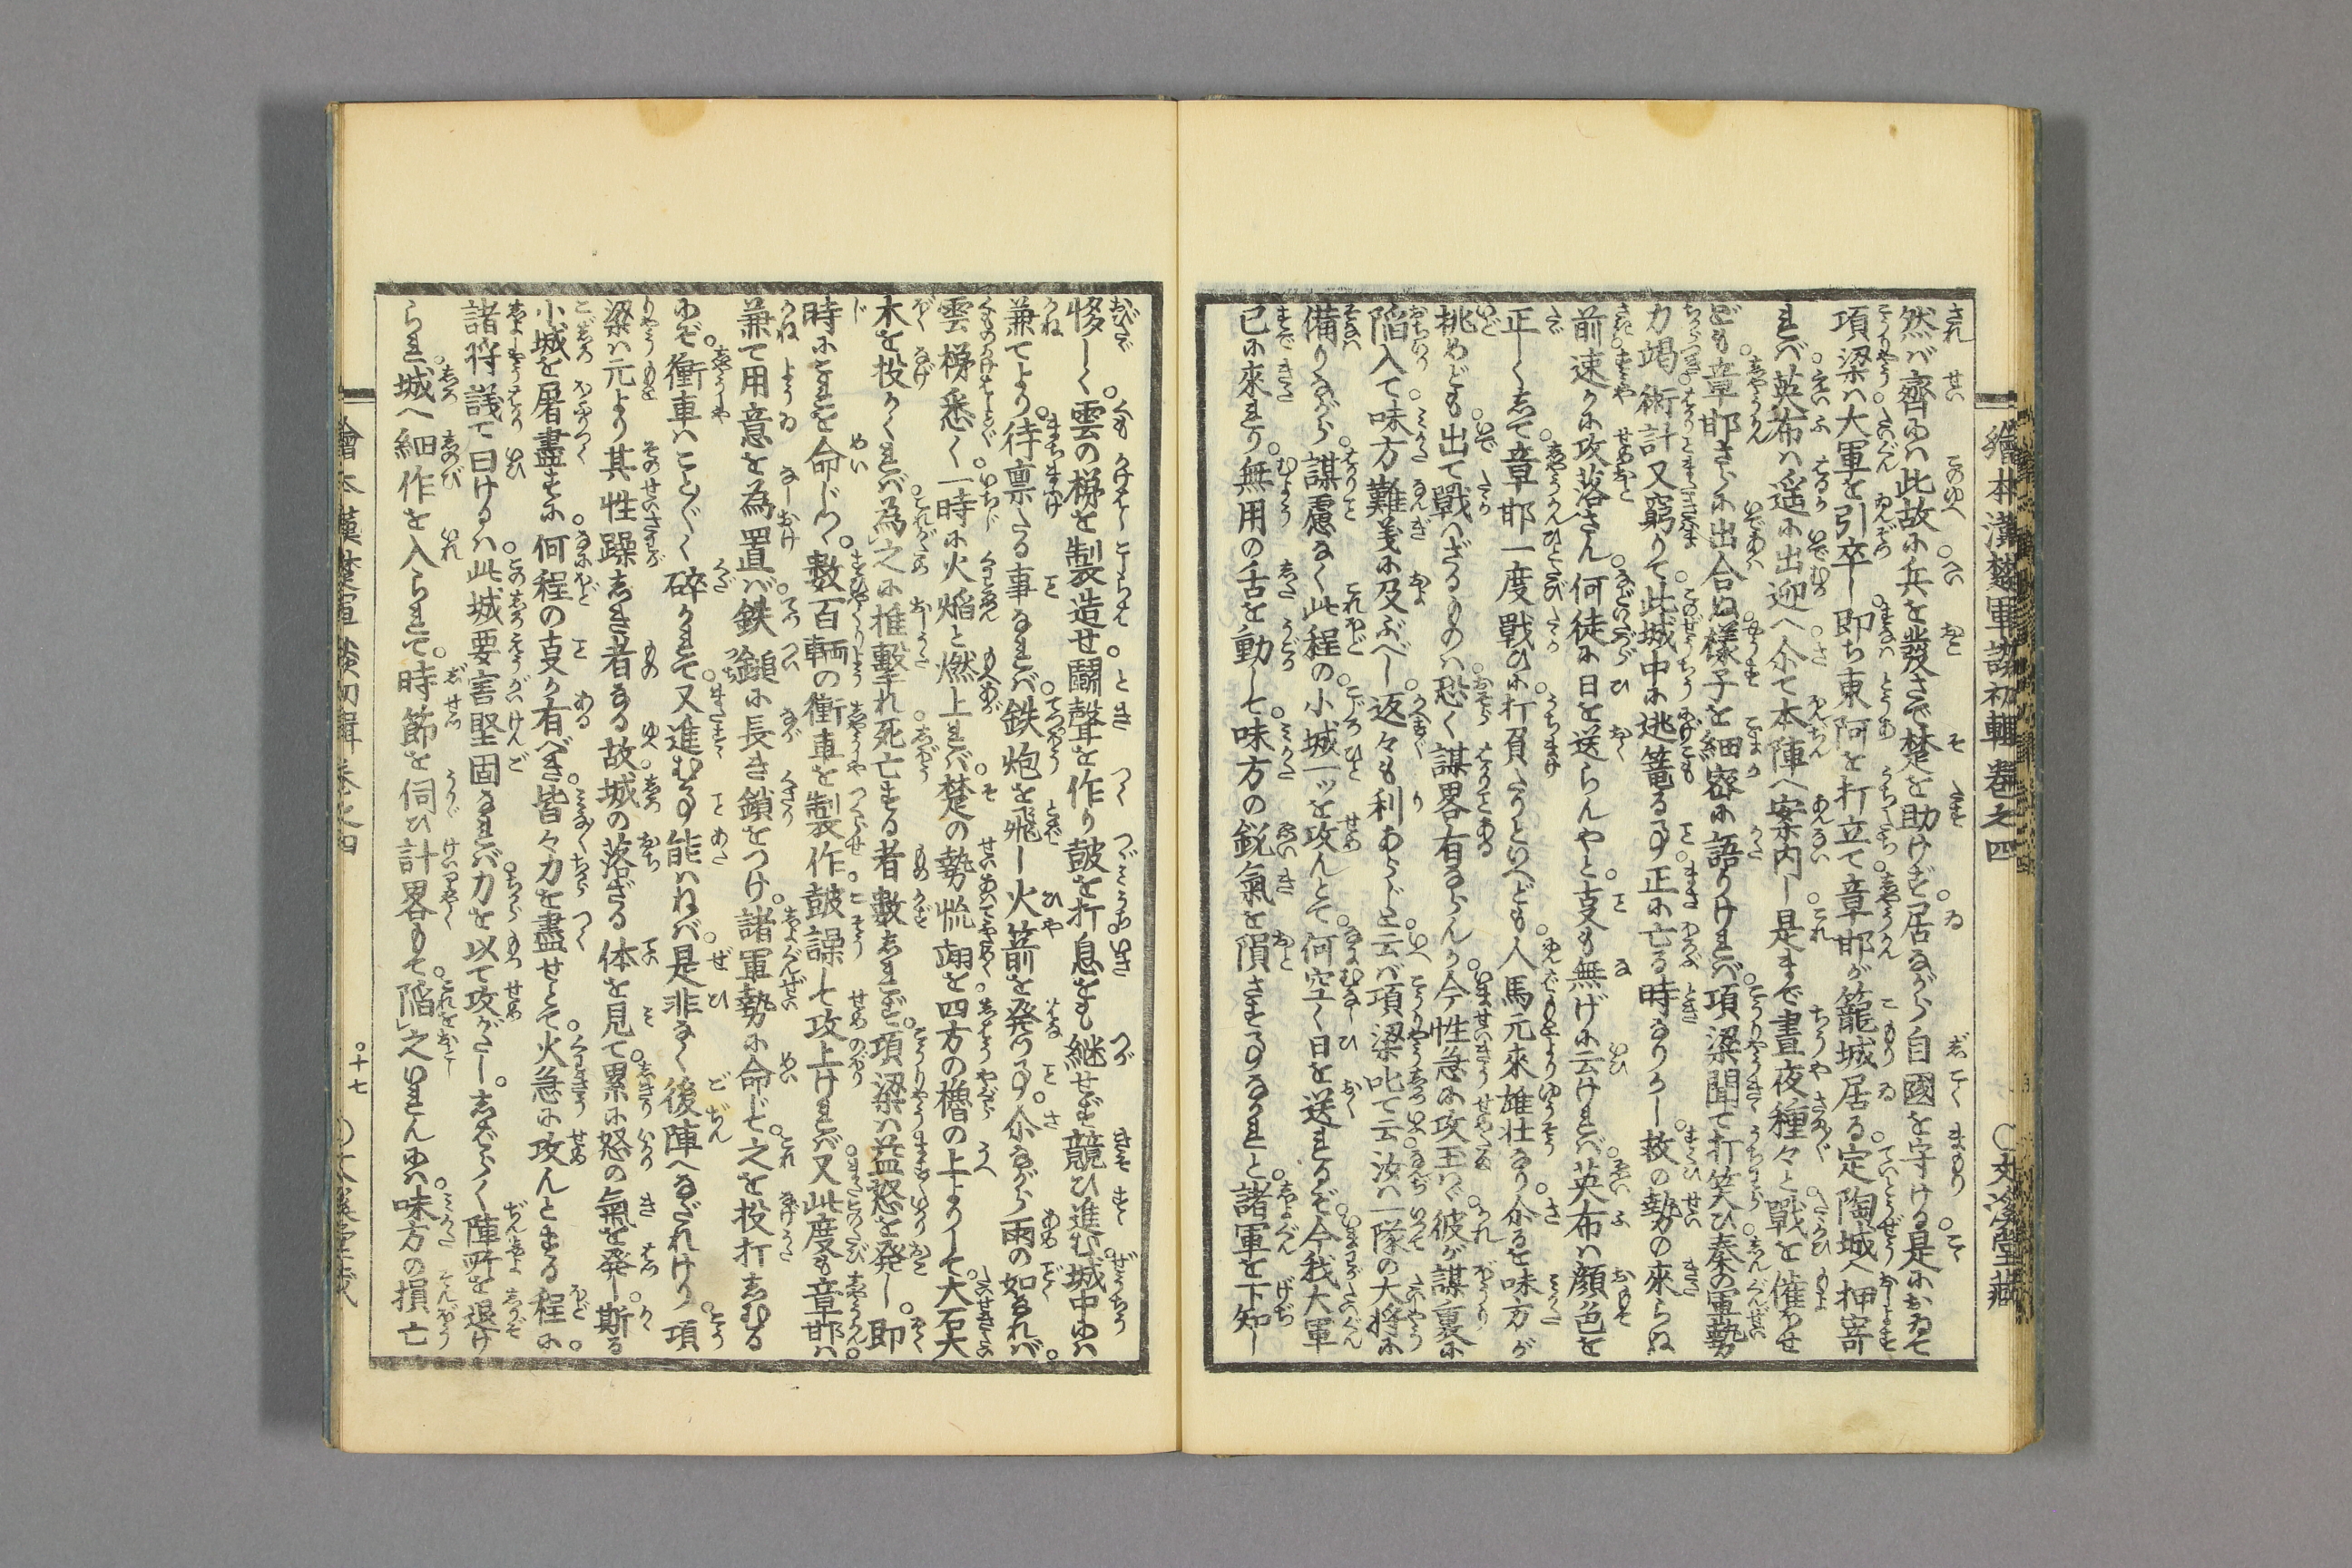 繪本漢楚軍談初輯卷之四 〇文溪堂藏
然バ齊にハ此故に兵を發さで楚を助けず。居ながら自國を守ける。是において
項梁ハ大軍を引卒し。即ち東阿を打立て章邯が籠城居る定陶城へ押寄
れバ。英布ハ遥に出迎へ。尒て本陣へ案内し。是まで晝夜種々と戰を催ほせ
ども。章邯さらに出合ぬ様子を細密に語りけれバ。項梁聞て打笑ひ。秦の軍勢
力竭。術計又窮りて。此城中に逃篭る事。正に亡る時なりかし。救の勢の來らぬ
前。速かに攻落さん。何徒に日を送らんやと。事も無げに云けれバ。英布ハ顔色を
正しくして。章邯一度戰ひに。打負たりといへども。人馬元來雄壮なり。尒るを味方が
挑めども。出て戰ハざるものハ。恐く謀畧有るらんか。今性急に攻玉ハヾ。彼が謀裏に
陥入て。味方難義に及ぶべし。返々も利あらじと。云バ項梁叱て云。汝ハ一隊の大将に
備りながら。謀慮なく此程の。小城一ッを攻んとて。何空く日を送れるぞ。今我大軍
已に來れり。無用の舌を動して。味方の鋭氣を隕さする事なかれと。諸軍を下知し
夥しく。雲の梯を製造せ。鬪聲を作り皷を打。息をも継せず競ひ進む。城中にハ
兼てより。待禀たる事なれバ。鉄炮を飛し火箭を発つ事。尒ながら雨の如なれバ。
雲梯悉く。一時に火焔と燃上れバ。楚の勢慌翊を四方の櫓の上よりして。大石大
木を投かくれバ。為之に推擊れ。死亡する者數しれず。項梁ハ益怒を発し。即
時にこれを命じつヽ。數百輌の衝車を製作。皷譟して攻上けれバ。又此度も章邯ハ。
兼て用意を為置バ。鉄鎚に長き鎖をつけ。諸軍勢に命じて。之を投打しむる
にぞ。衝車ハこと〴〵く碎かれて。又進む事能ハねバ。是非なく後陣へなだれけり。項
梁ハ元より其性躁しき者なる故。城の落ざる体を見て。累に怒の氣を発し。斯る
小城を屠盡すに。何程の事か有べき。皆々力を盡せとて。火急に攻んとする程に。
諸将議て曰けるハ。此城要害堅固なれバ。力を以て攻がたし。しばらく陣所を退け
られ。城へ細作を入られて。時節を伺ひ計畧もて。陥之いれんにハ。味方の損亡
繪本漢楚軍談初輯卷之四 〇十七 〇文溪堂藏